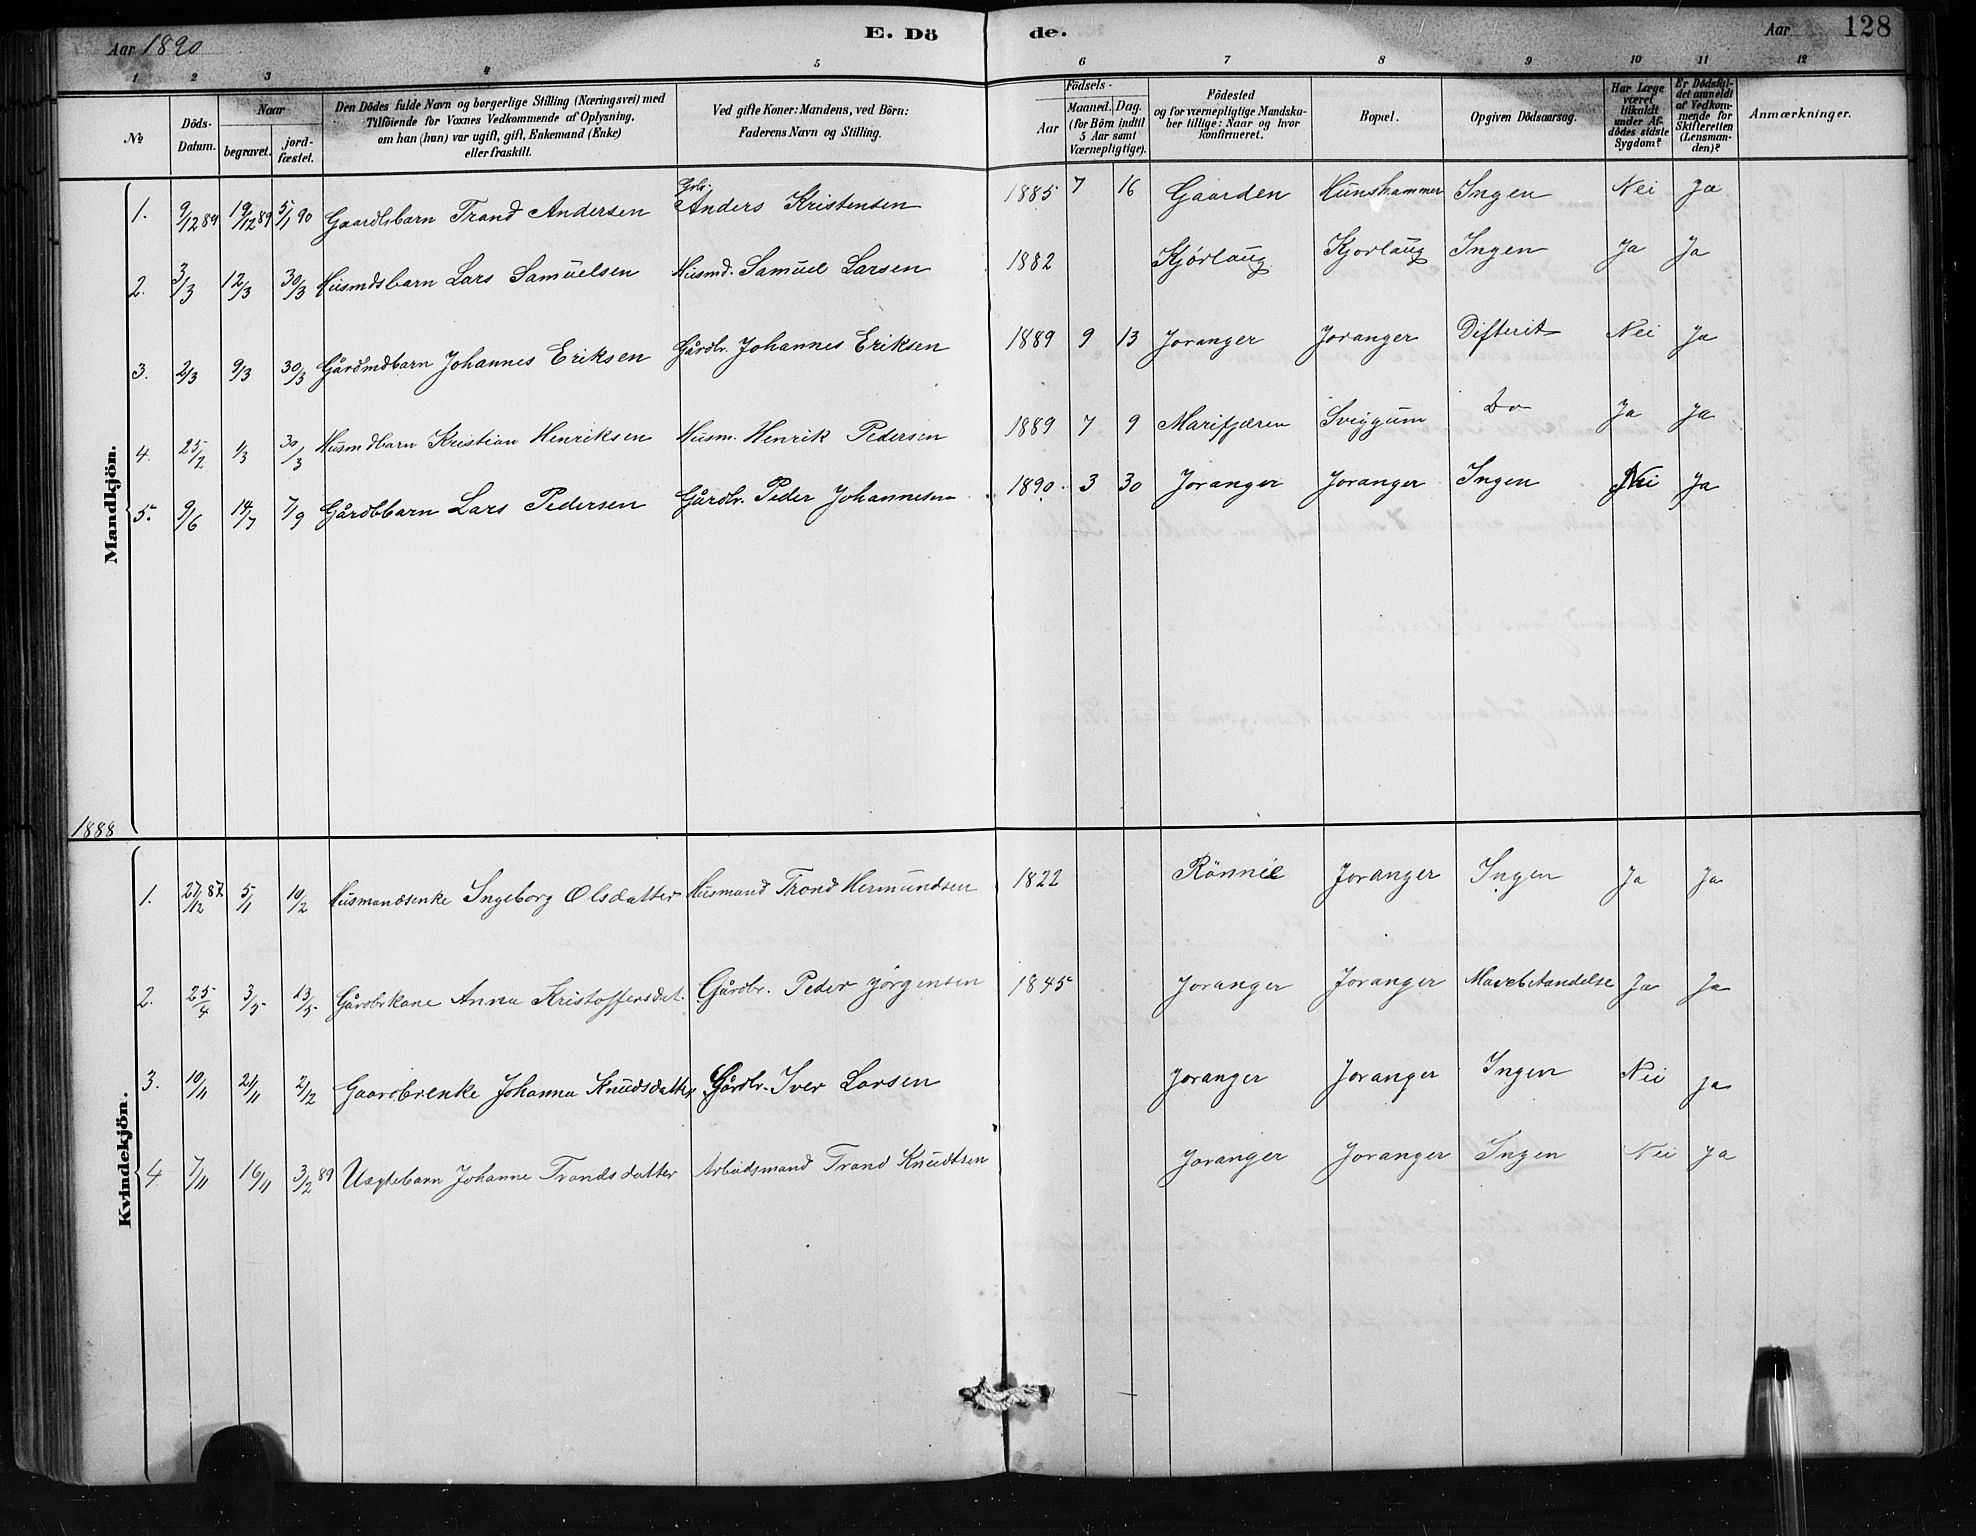 Aar 1890 E. Dö de. Aar 128
1 2 3 4 5 6 7 8 9 10 11 12
№
Döds-Datum.
Naar
begravet.
jord-fæstet.
Den Dödes fulde Navn og borgerlige Stilling (Næringsvei) med
Tilföiende for Voxnes Vedkommende af Oplysning,
om han (hun) var ugift, gift, Enkemand (Enke)
eller fraskilt.
Ved gifte Koner: Mandens, ved Börn:
Faderens Navn og Stilling.
Födsels-
Aar
Maaned. Dag.
(for Börn indtil
5 Aar samt
Værnepligtige).
Födested
og for værnepligtige Mandska-
ber tillige: Naar og hvor
konfirmeret.
Bopæl.
Opgiven Dödsaarsag.
Har Læge
været
tilkaldt
under Af-
dödes sidste
Sygdom?
Er Dödsfal-
det anmeldt
af Vedkom-
mende for
Skifteretten
(Lensman-
den)?
Anmærkninger.
Mandkjön.
1. 9/12 89 19/12 89 5/1 90 Gaardbsbarn Trond Andersen Gbr. Anders Kristensen 1885 7 16 Gaarden Hunshammer Ingen Nei Ja
2. 3/3 12/3 30/3 Husmdsbarn Lars Samuelsen Husmd. Samuel Larsen 1882 Kjørlaug Kjørlaug Ingen Ja Ja
3. 2/3 9/3 30/3 Gårdmdbarn Johannes Eriksen Gårdbr. Johannes Eriksen 1889 9 13 Joranger Joranger Difterit Nei Ja
4. 25/2 1/3 30/3 Husmdbarn Kristian Henriksen Husm. Henrik Pedersen 1889 7 9 Marifjæren Sviggum Do Ja Ja
5. 9/6 14/7 7/9 Gårdbbarn Lars Pedersen Gårdbr. Peder Johannesen 1890. 3 30 Joranger Joranger Ingen Nei Ja
1888
Kvindekjön.
1. 27/12 87 5/1 10/2 Husmandsenke Ingeborg Olsdatter Husmand Trond Hermundsen 1822 Rönnei Joranger Ingen Ja Ja
2. 25/4 3/5 13/5 Gårdbrkone Anna Kristoffersdat. Gårdbr. Peder Jörgensen 1845 Joranger Joranger Mavebetændelse Ja Ja
3. 10/11 21/11 2/12 Gaardbrenke Johanna Knudsdatter Gårdbr. Iver Larsen Joranger Joranger Ingen Nei Ja
4 7/11 16/11 3/2 89 Uægtebarn Johanne Trondsdatter Arbeidsmand Trond Knudtsen Joranger Joranger Ingen Nei Ja